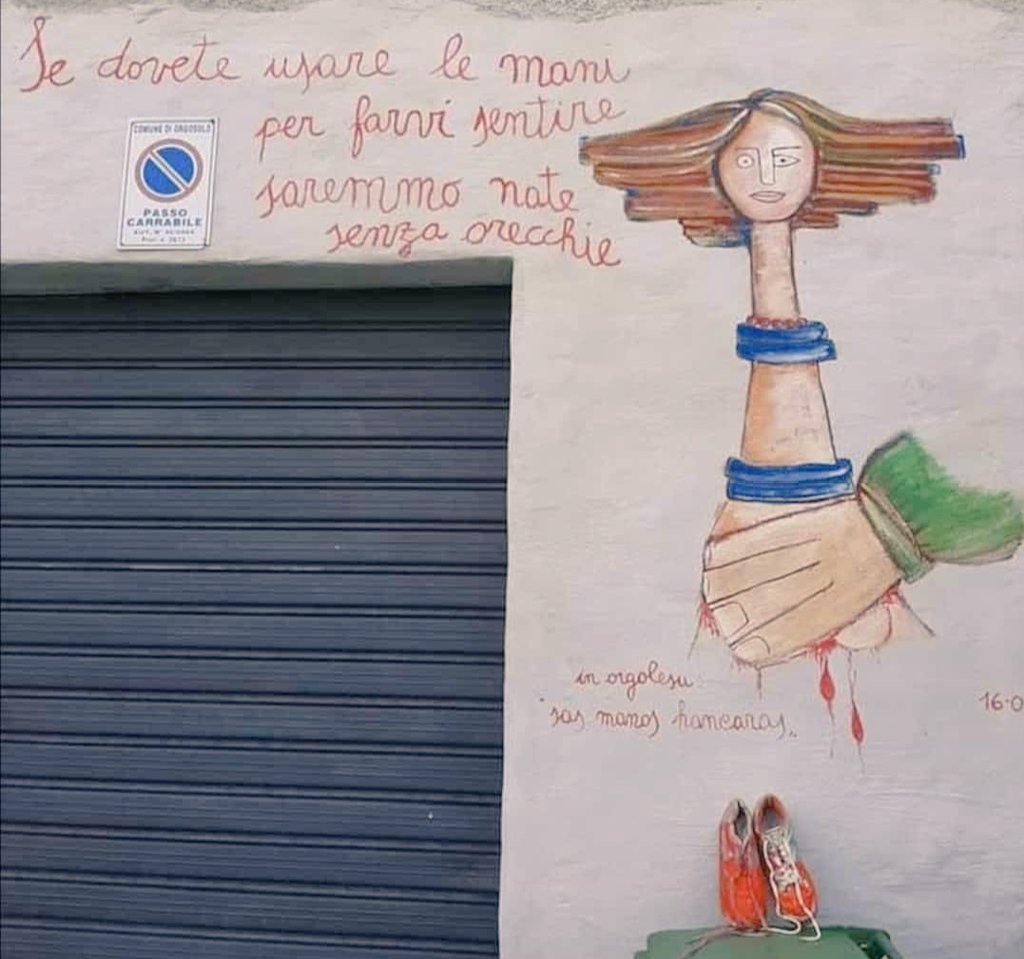 Se dovete usare le mani
per farvi sentire
saremmo nate
senza orecchie
COMUNE DI ORGOSOLO
PASSO
CARRABILE
in orgolesu
sas manos
16-0